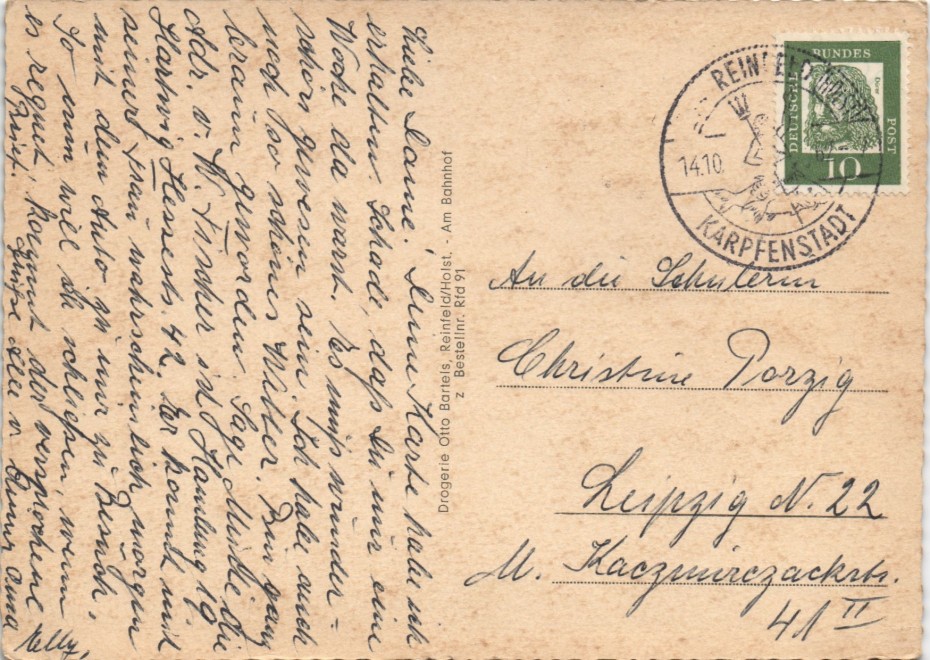 Liebe Hanne! Deine Karte habe ich
erhalten. Schade, daß Du nur eine
Woche da warst. Es muß wunder-
schön gewesen sein. Ich habe auch
noch so schönes Wetter. Bin ganz
braun geworden. Sage Mutti die
Adr. v. W. Fischer ist Hamburg 19
Hartwig Hessestr. 42. Er kommt mit
seiner Frau wahrscheinlich morgen
mit dem Auto zu mir zu Besuch.
So nun will ich schließen, wenn
es regnet, kommt der versprochene
Brief. Grüße Alle v. Deiner Oma
Elly.
Drogerie Otto Bartels, Reinfeld/Holst. - Am Bahnhof
z Bestellnr. Rfd 91
DEUTSCHE BUNDES POST
Dürer
10
REINFELD (HOLST)
14.10.
KARPFENSTADT
An die Schülerin
Christine Porzig
Leipzig N. 22
M. Kaczmirczackstr.
41 II